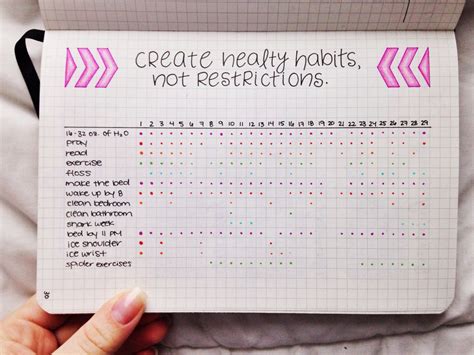 create healty habits,
not restrictions.
1 2 3 4 5 6 7 8 9 10 11 12 13 14 15 16 17 18 19 20 21 22 23 24 25 26 27 28 29
16-32 oz. of H₂O
pray
read
exercise
floss
make the bed
wake up by 8
clean bedroom
clean bathroom
shark week
bed by 11 PM
ice shoulder
ice wrist
spider exercises